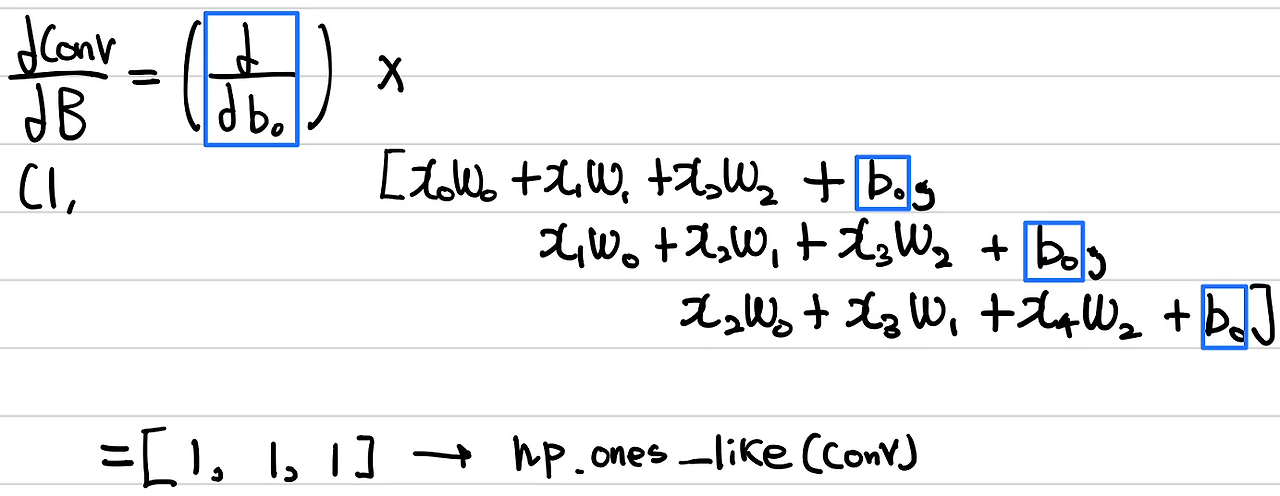 dConv/dB = (d/db₀) ×
(1,
[x₀w₀ + x₁w₁ + x₂w₂ + b₀,
x₁w₀ + x₂w₁ + x₃w₂ + b₀,
x₂w₀ + x₃w₁ + x₄w₂ + b₀]
= [1, 1, 1] → np.ones_like(conv)